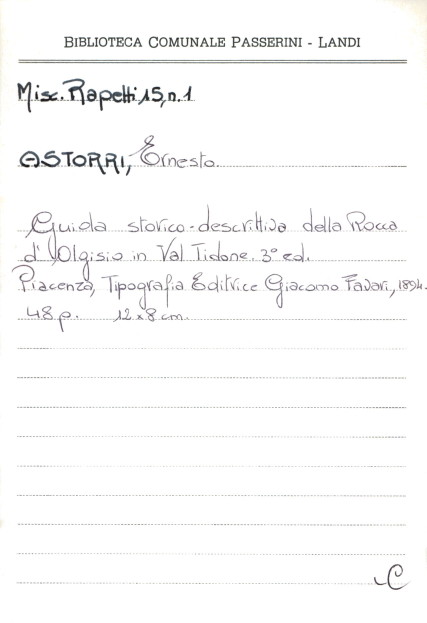 BIBLIOTECA COMUNALE PASSERINI - LANDI
Misc. Rapetti 15, n. 1
ASTORRI, Ernesto
Guida storico-descrittiva della Rocca
d'Olgisio in Val Tidone. 3° ed.
Piacenza, Tipografia Editrice Giacomo Favari, 1894.
48 p. 12x8 cm.
C